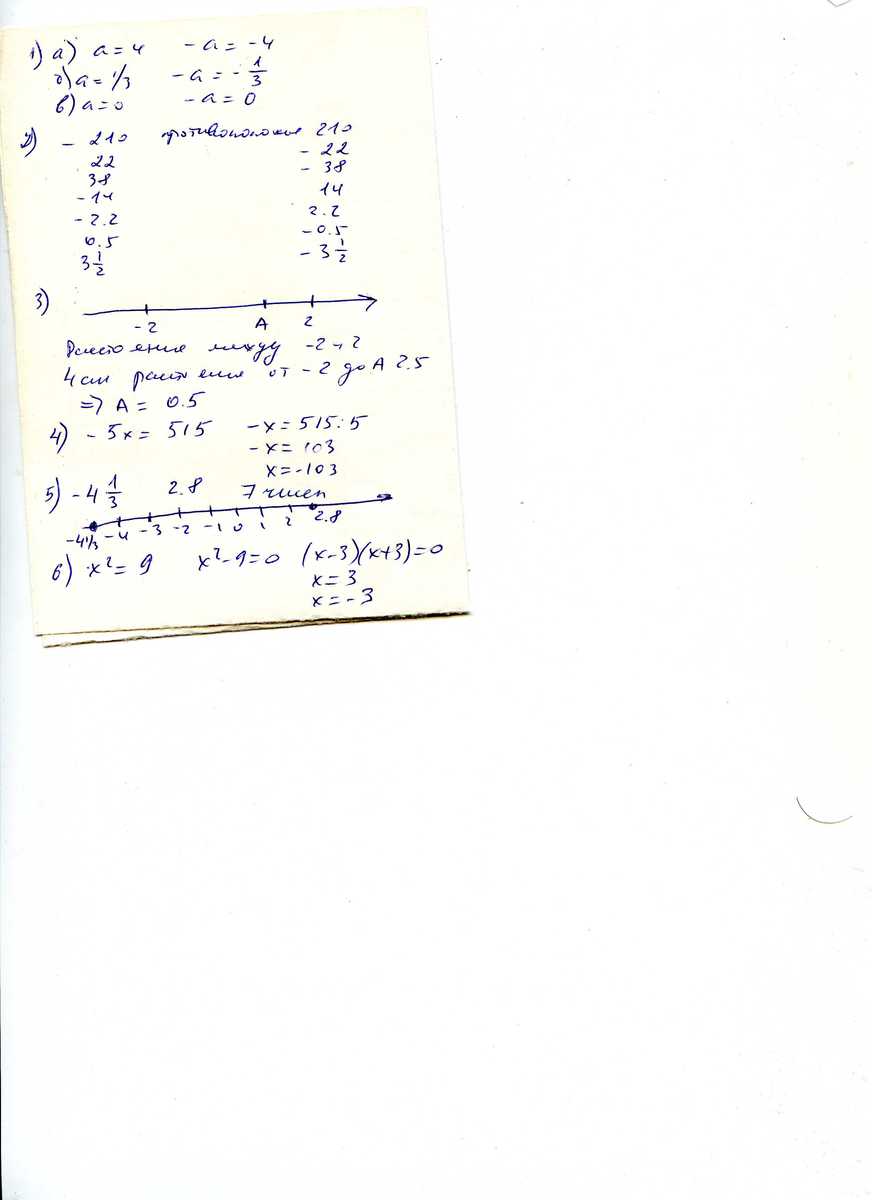 1) а) a = 4 - a = -4
б) a = 1/3 - a = - 1/3
в) a = 0 - a = 0
2) - 210 противоположные 210
22 - 22
38 - 38
- 14 14
- 2.2 2.2
0.5 - 0.5
3 1/2 - 3 1/2
3)
- 2 A 2
Расстояние между -2 и 2
4 см расстояние от - 2 до A 2.5
=> A = 0.5
4) - 5x = 515 - x = 515:5
- x = 103
x = -103
5) - 4 1/3 2.8 7 чисел
-4 1/3 -4 -3 -2 -1 0 1 2 2.8
6) x² = 9 x² - 9 = 0 (x-3)(x+3) = 0
x = 3
x = - 3